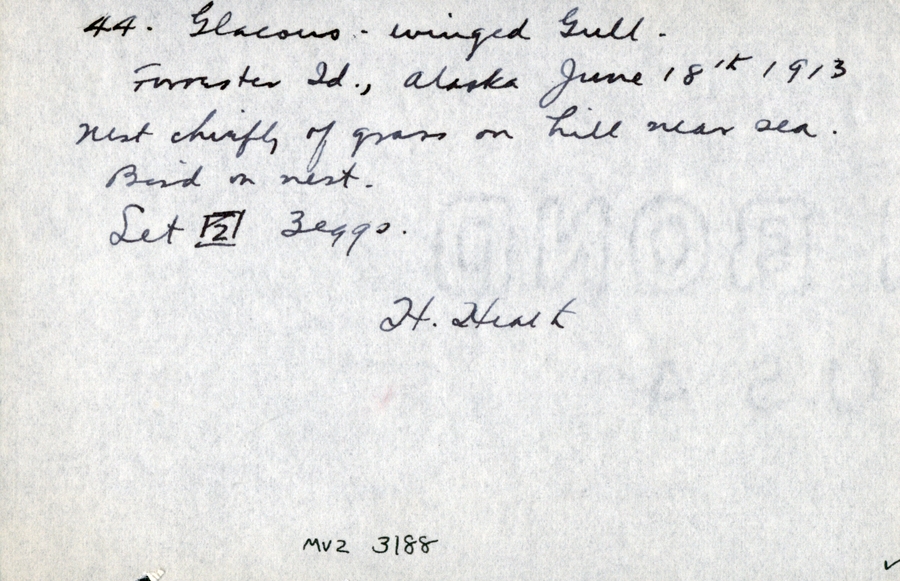 44. Glacous-winged Gull.
Forrester Id., Alaska June 18th 1913
nest chiefly of grass on hill near sea.
Bird on nest.
Set 3 eggs.
H. Heath
MVZ 3188